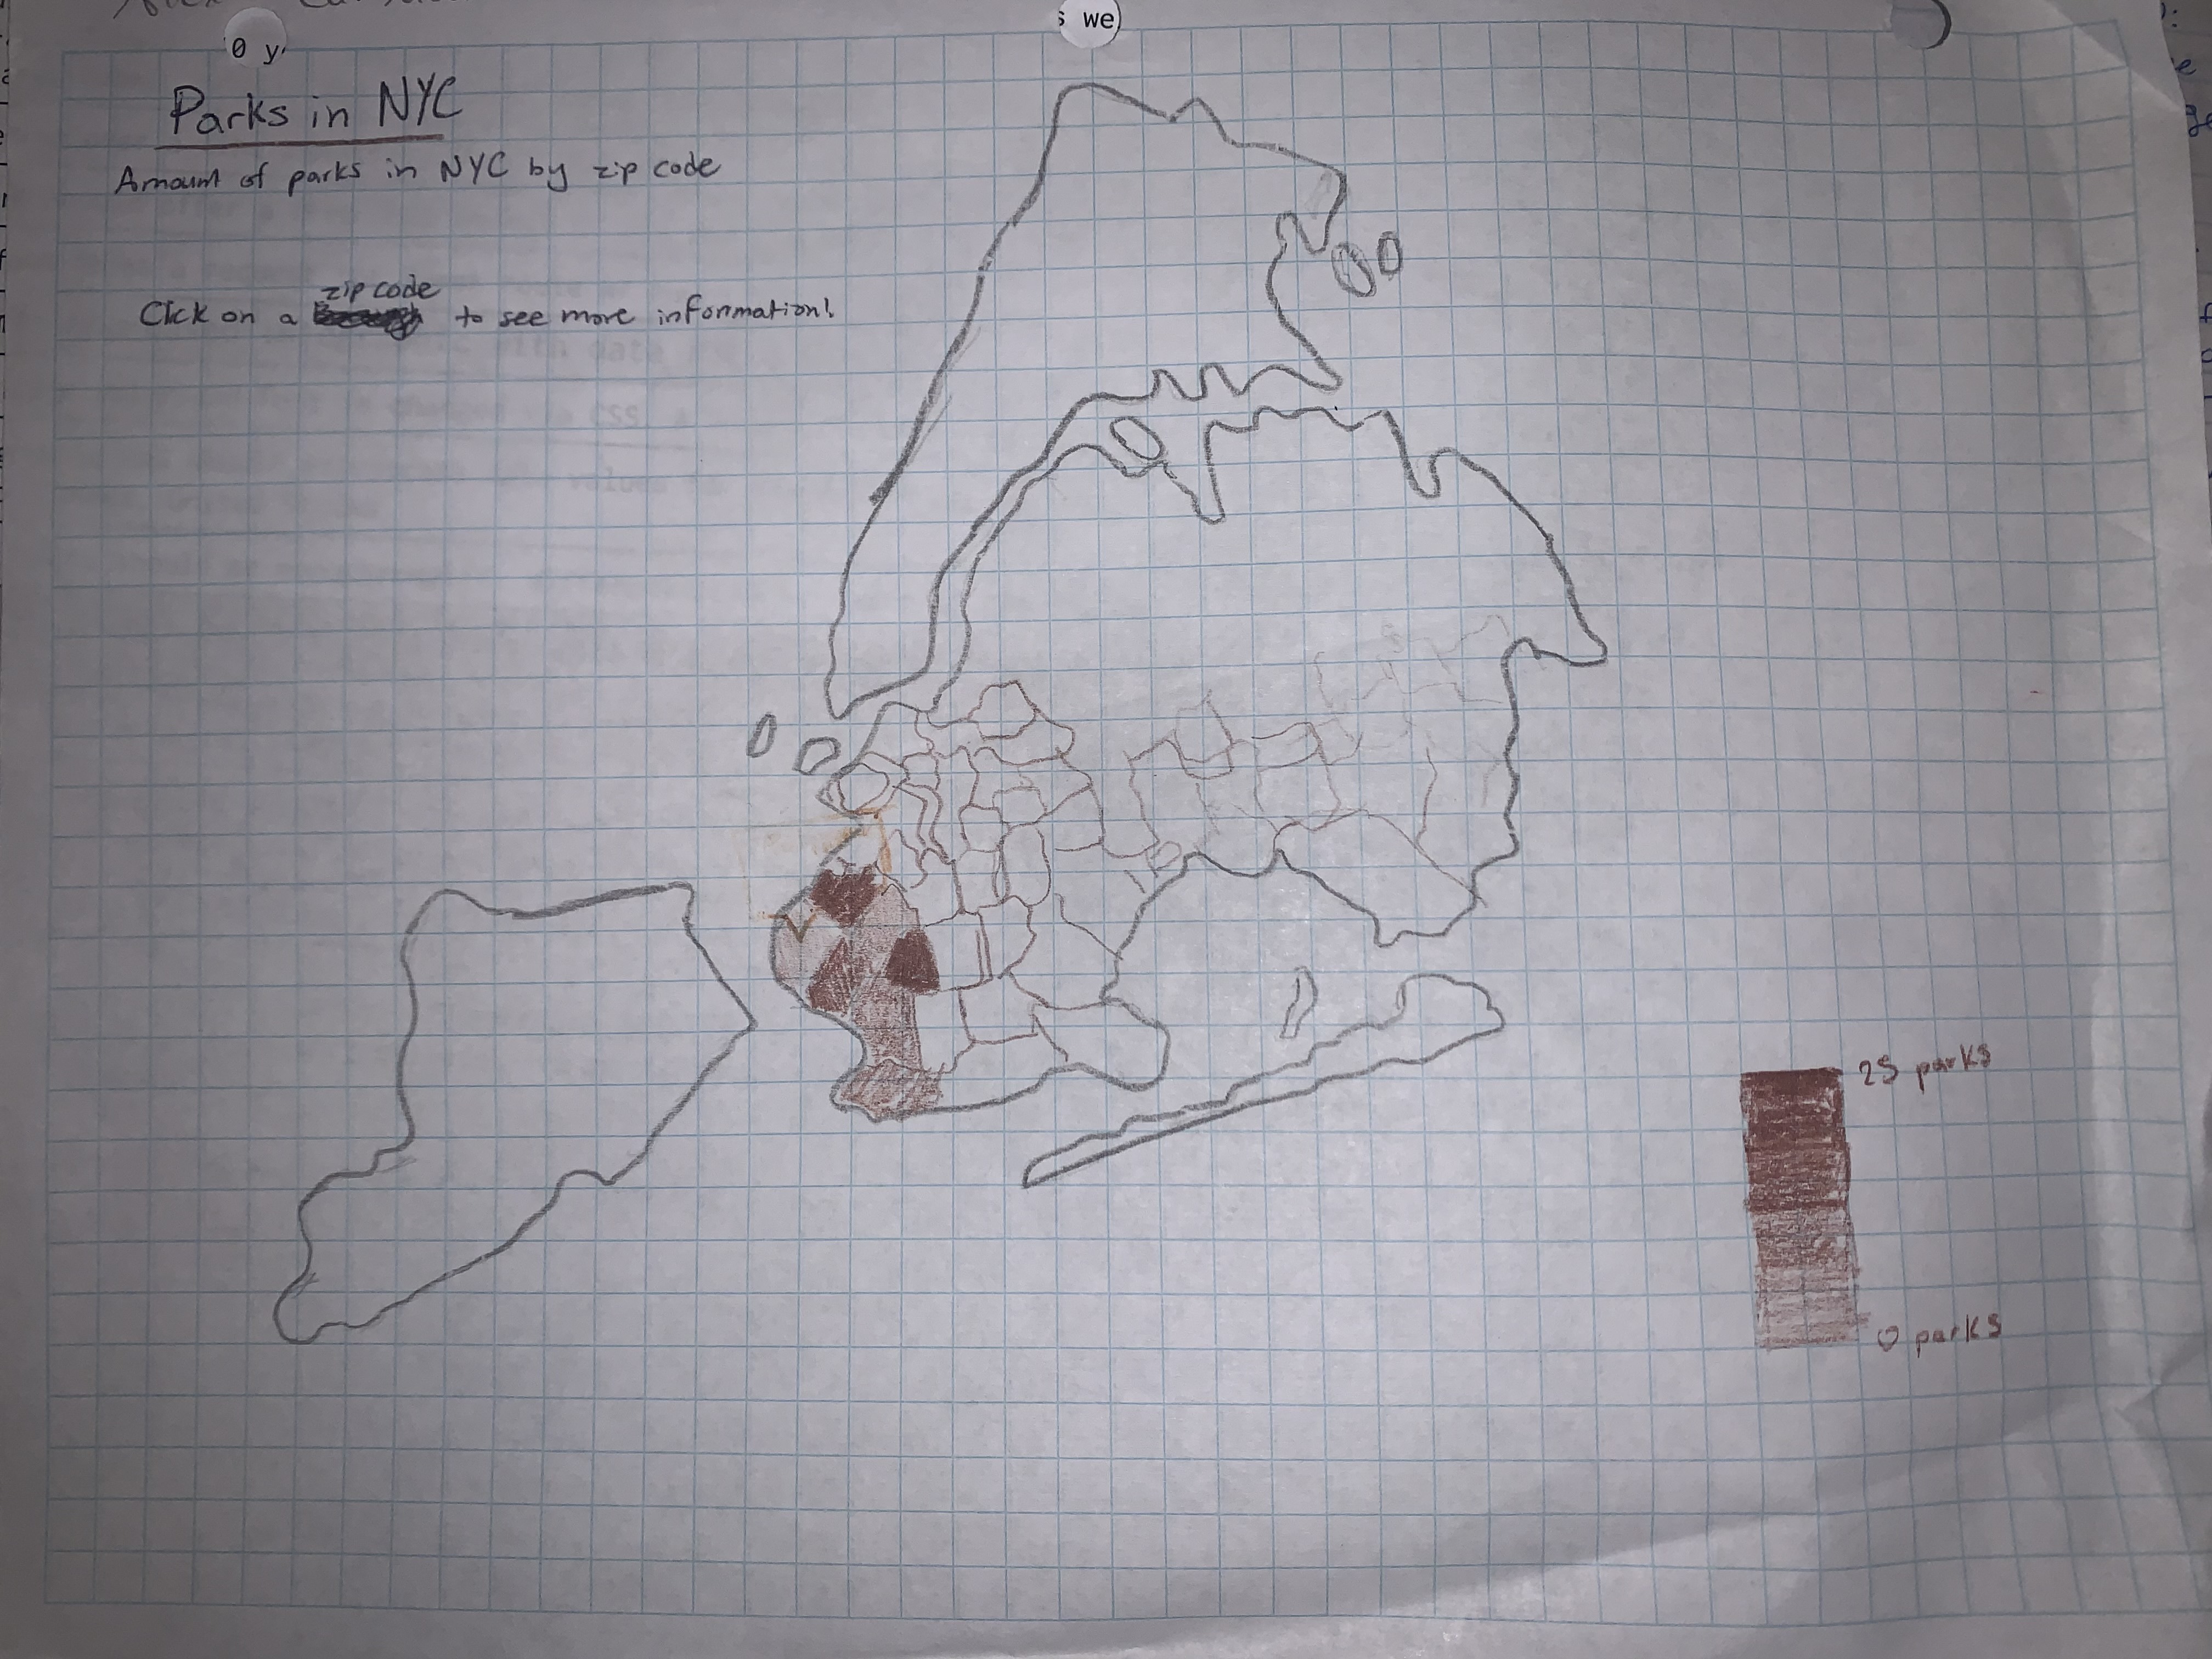 Parks in NYC
Amount of parks in NYC by zip code
Click on a zip code to see more information!
25 parks
0 parks
0 y
s we